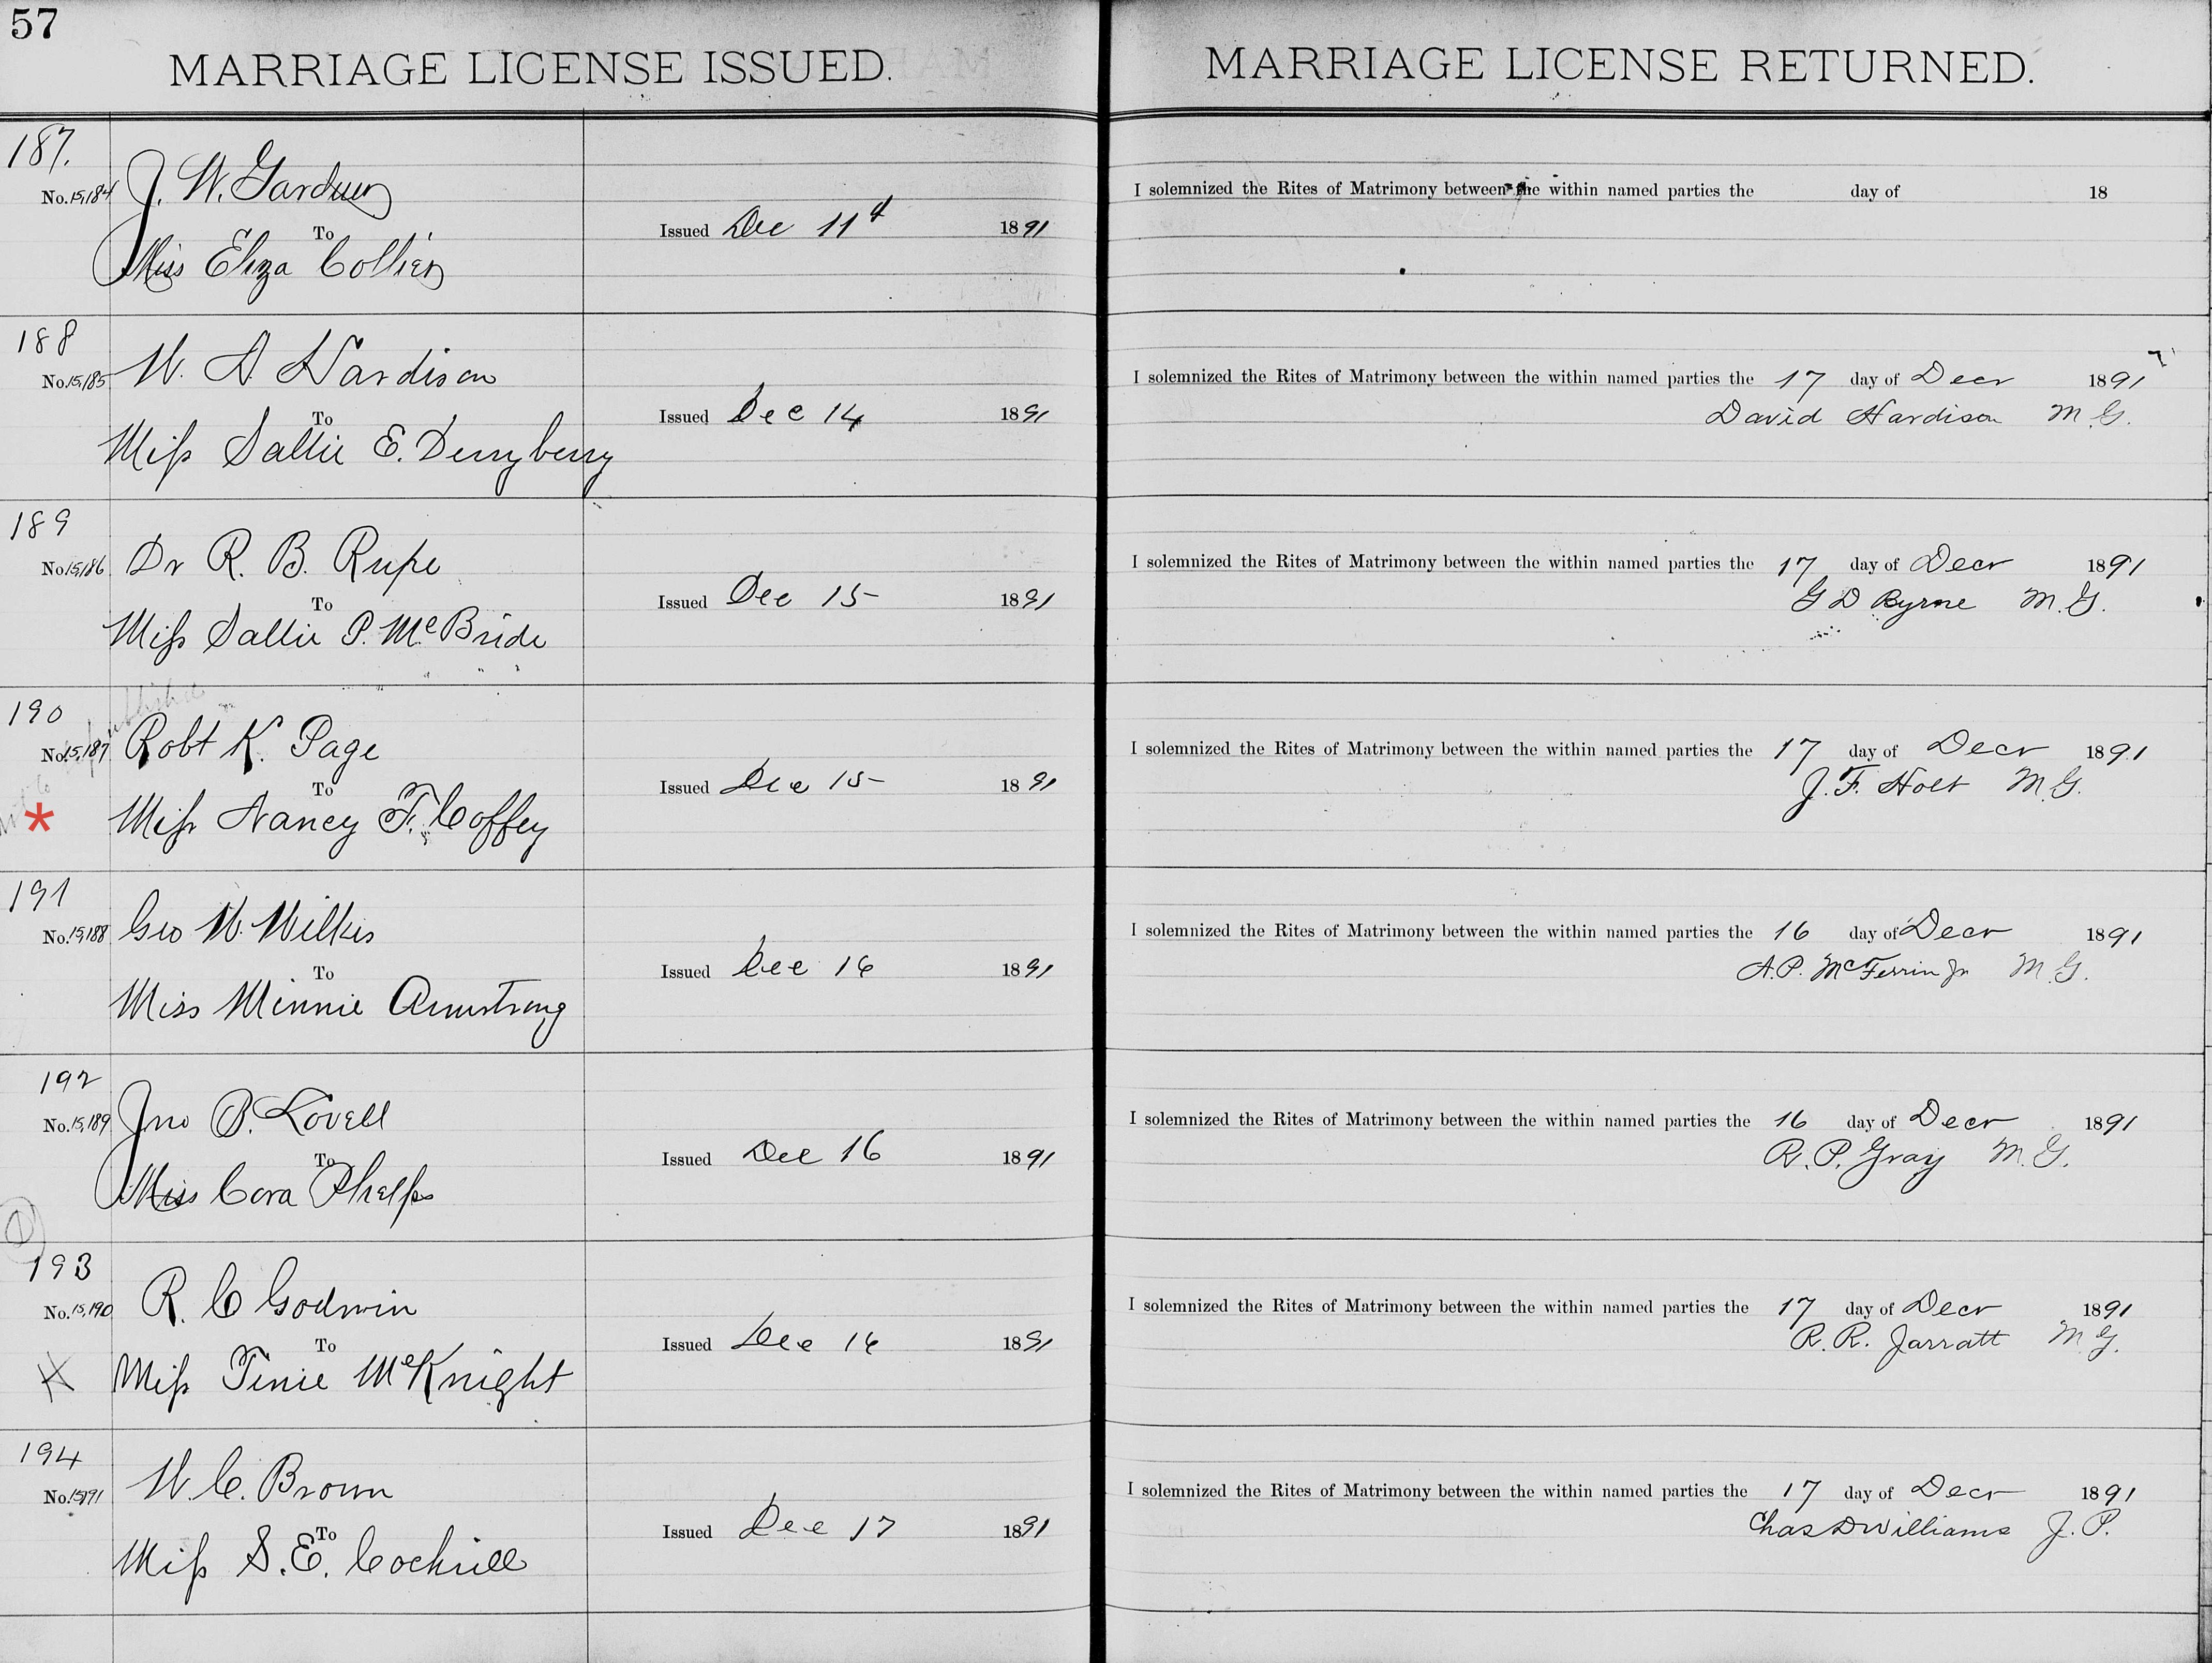 57
MARRIAGE LICENSE ISSUED.
MARRIAGE LICENSE RETURNED.
187.
No. 15,184 J. W. Gardner
To
Miss Eliza Collier
Issued Dec 11th 1891
I solemnized the Rites of Matrimony between the within named parties the day of 18
188
No. 15,185 W. A. Hardison
To
Miss Sallie E. Derryberry
Issued Dec 14 1891
I solemnized the Rites of Matrimony between the within named parties the 17 day of Decr 1891
David Hardison M.G.
189
No. 15,186 Dr R. B. Rupe
To
Miss Sallie P. McBride
Issued Dec 15 1891
I solemnized the Rites of Matrimony between the within named parties the 17 day of Decr 1891
G D Byrne M.G.
190
published
No. 15,187 Robt K. Page
To
* Miss Nancy F. Coffey
Issued Dec 15 1891
I solemnized the Rites of Matrimony between the within named parties the 17 day of Decr 1891
J. F. Holt M.G.
191
No. 15,188 Geo W. Wilkes
To
Miss Minnie Armstrong
Issued Dec 16 1891
I solemnized the Rites of Matrimony between the within named parties the 16 day of Decr 1891
A. P. McFerrin Jr M.G.
192
No. 15,189 Jno B. Lovell
To
Miss Cora Phelps
Issued Dec 16 1891
I solemnized the Rites of Matrimony between the within named parties the 16 day of Decr 1891
R. P. Gray M.G.
193
No. 15,190 R. C Godwin
To
Miss Tinie McKnight
Issued Dec 16 1891
I solemnized the Rites of Matrimony between the within named parties the 17 day of Decr 1891
R. R. Jarratt M.G.
194
No. 15,191 W. C. Brown
To
Miss S. E. Cochrill
Issued Dec 17 1891
I solemnized the Rites of Matrimony between the within named parties the 17 day of Decr 1891
Chas D Williams J. P.